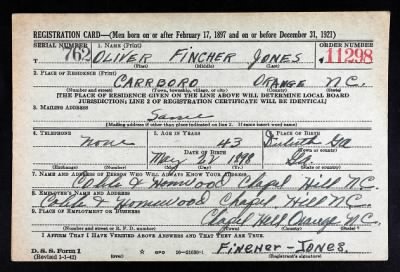 REGISTRATION CARD—(Men born on or after February 17, 1897 and on or before December 31, 1921)
SERIAL NUMBER 1. NAME (Print) ORDER NUMBER
T 762 OLIVER FINCHER JONES 11298
(First) (Middle) (Last)
2. PLACE OF RESIDENCE (Print)
CARRBORO ORANGE N.C.
(Number and street) (Town, township, village, or city) (County) (State)
[THE PLACE OF RESIDENCE GIVEN ON THE LINE ABOVE WILL DETERMINE LOCAL BOARD
JURISDICTION; LINE 2 OF REGISTRATION CERTIFICATE WILL BE IDENTICAL]
3. MAILING ADDRESS
Same
[Mailing address if other than place indicated on line 2. If same insert word same]
4. TELEPHONE 5. AGE IN YEARS 6. PLACE OF BIRTH
None 43 Duluth Ga
DATE OF BIRTH (Town or county)
May 28 1898 Ga.
(Exchange) (Number) (Mo.) (Day) (Yr.) (State or country)
7. NAME AND ADDRESS OF PERSON WHO WILL ALWAYS KNOW YOUR ADDRESS
Homewood Chapel Hill N.C.
8. EMPLOYER'S NAME AND ADDRESS
Homewood Chapel Hill N.C.
9. PLACE OF EMPLOYMENT OR BUSINESS
Chapel Hill Orange N.C.
(Number and street or R. F. D. number) (Town) (County) (State)
I AFFIRM THAT I HAVE VERIFIED ABOVE ANSWERS AND THAT THEY ARE TRUE.
D. S. S. Form 1 GPO 16—21630-1 Fincher - Jones.
(Revised 1-1-42) (Registrant's signature)